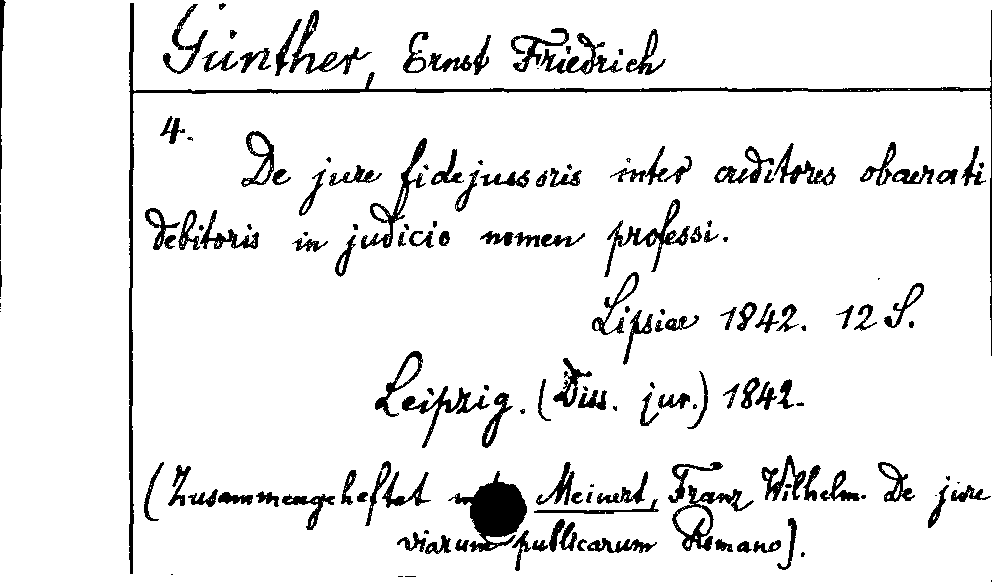 Günther, Ernst Friedrich
4.
De jure fidejussoris inter creditores obaerati
debitoris in judicio nomen professi.
Lipsiae 1842. 12 S.
Leipzig. (Diss. jur.) 1842.
(Zusammengeheftet mit Meinert, Franz Wilhelm. De jure
viarum publicarum Romano).